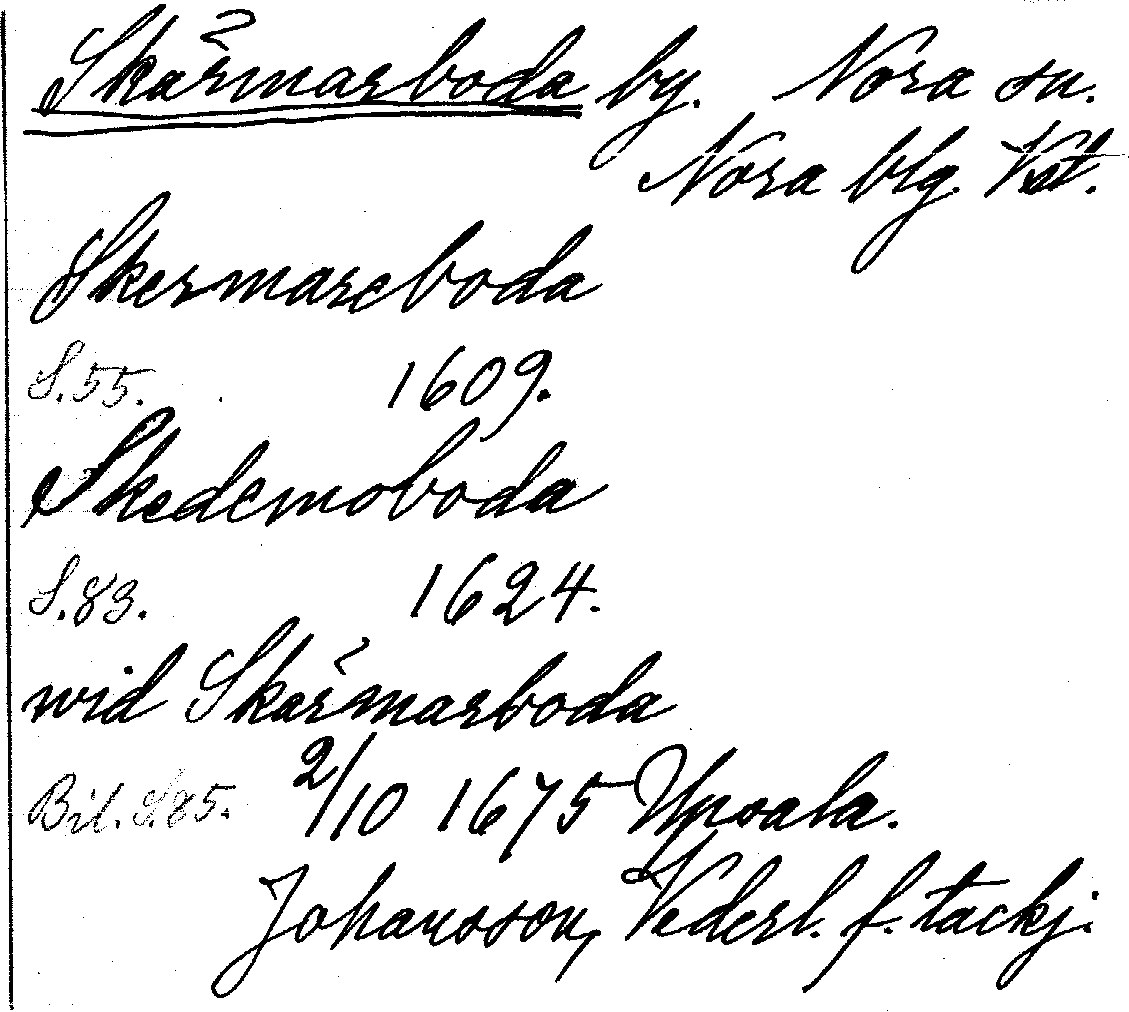 Skärmarboda by. Nora sn.
Nora blg. Vstl.
Skermareboda
S.55. 1609.
Skedemoboda
S.83. 1624.
wid Skärmarboda
Bil. S.85. 2/10 1675 Upsala.
Johansson, Vederl. f. tackj.